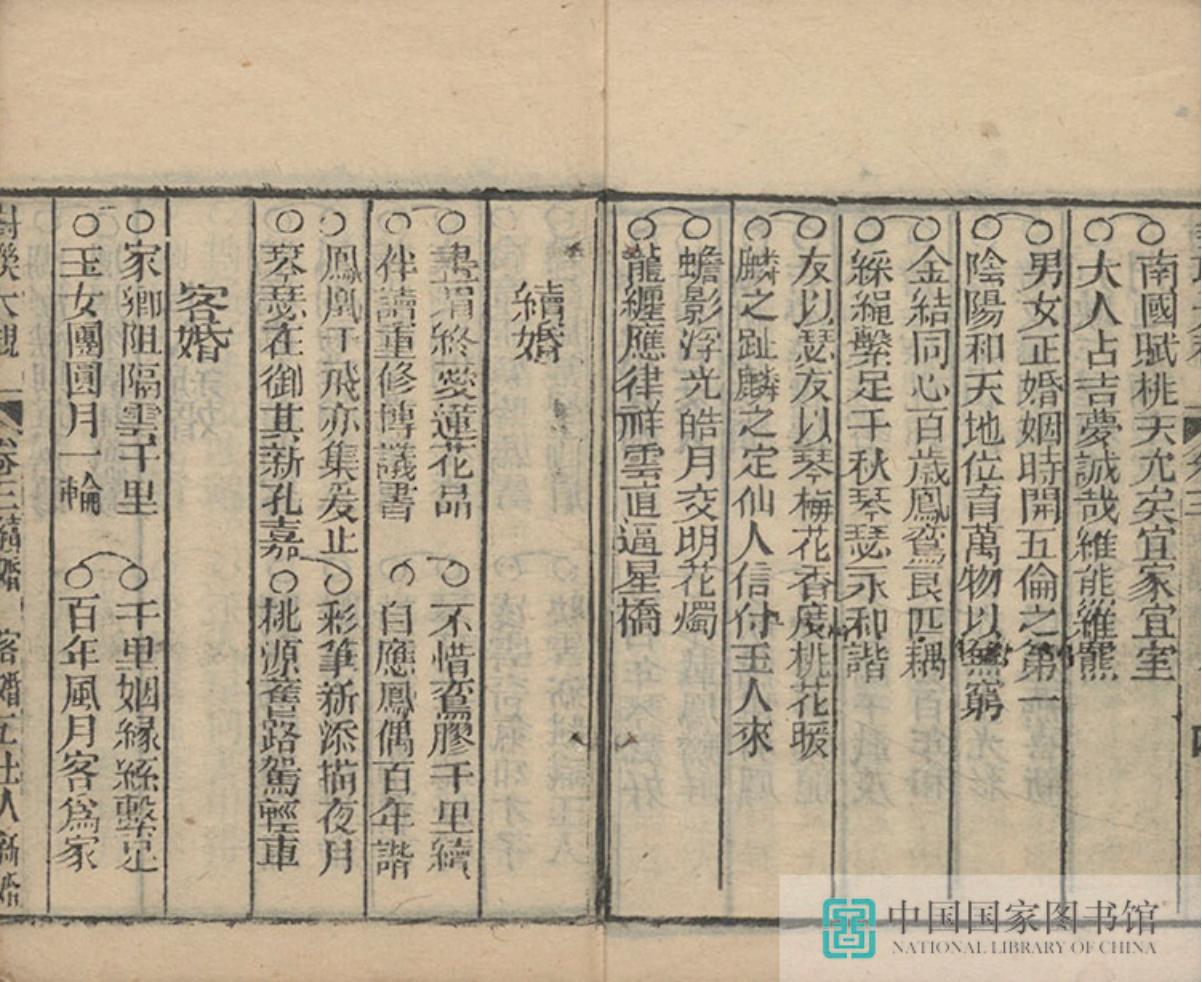 南國賦桃夭允矣宜家宜室
大人占吉夢誠哉維熊維羆
男女正婚姻時開五倫之第一
陰陽和天地位育萬物以無窮
金結同心百歲鳳鸞良匹耦
綵繩繫足千秋琴瑟永和諧
友以瑟友以琴梅花香度桃花暖
麟之趾麟之定仙人信付玉人來
蟾影浮光皓月交明花燭
龍纏應律祥雲直逼星橋
續婚
畫眉終愛蓮花品
不惜鸞膠千里續
伴讀重修博議書
自應鳳偶百年諧
鳳凰于飛亦集爰止
彩筆新添描夜月
琴瑟在御其新孔嘉
桃源舊路駕輕車
客婚
家鄉阻隔雲千里
千里姻緣絲繫足
玉女團圓月一輪
百年風月客為家
大觀 卷三續婚 客婚 五
中国国家图书馆
NATIONAL LIBRARY OF CHINA